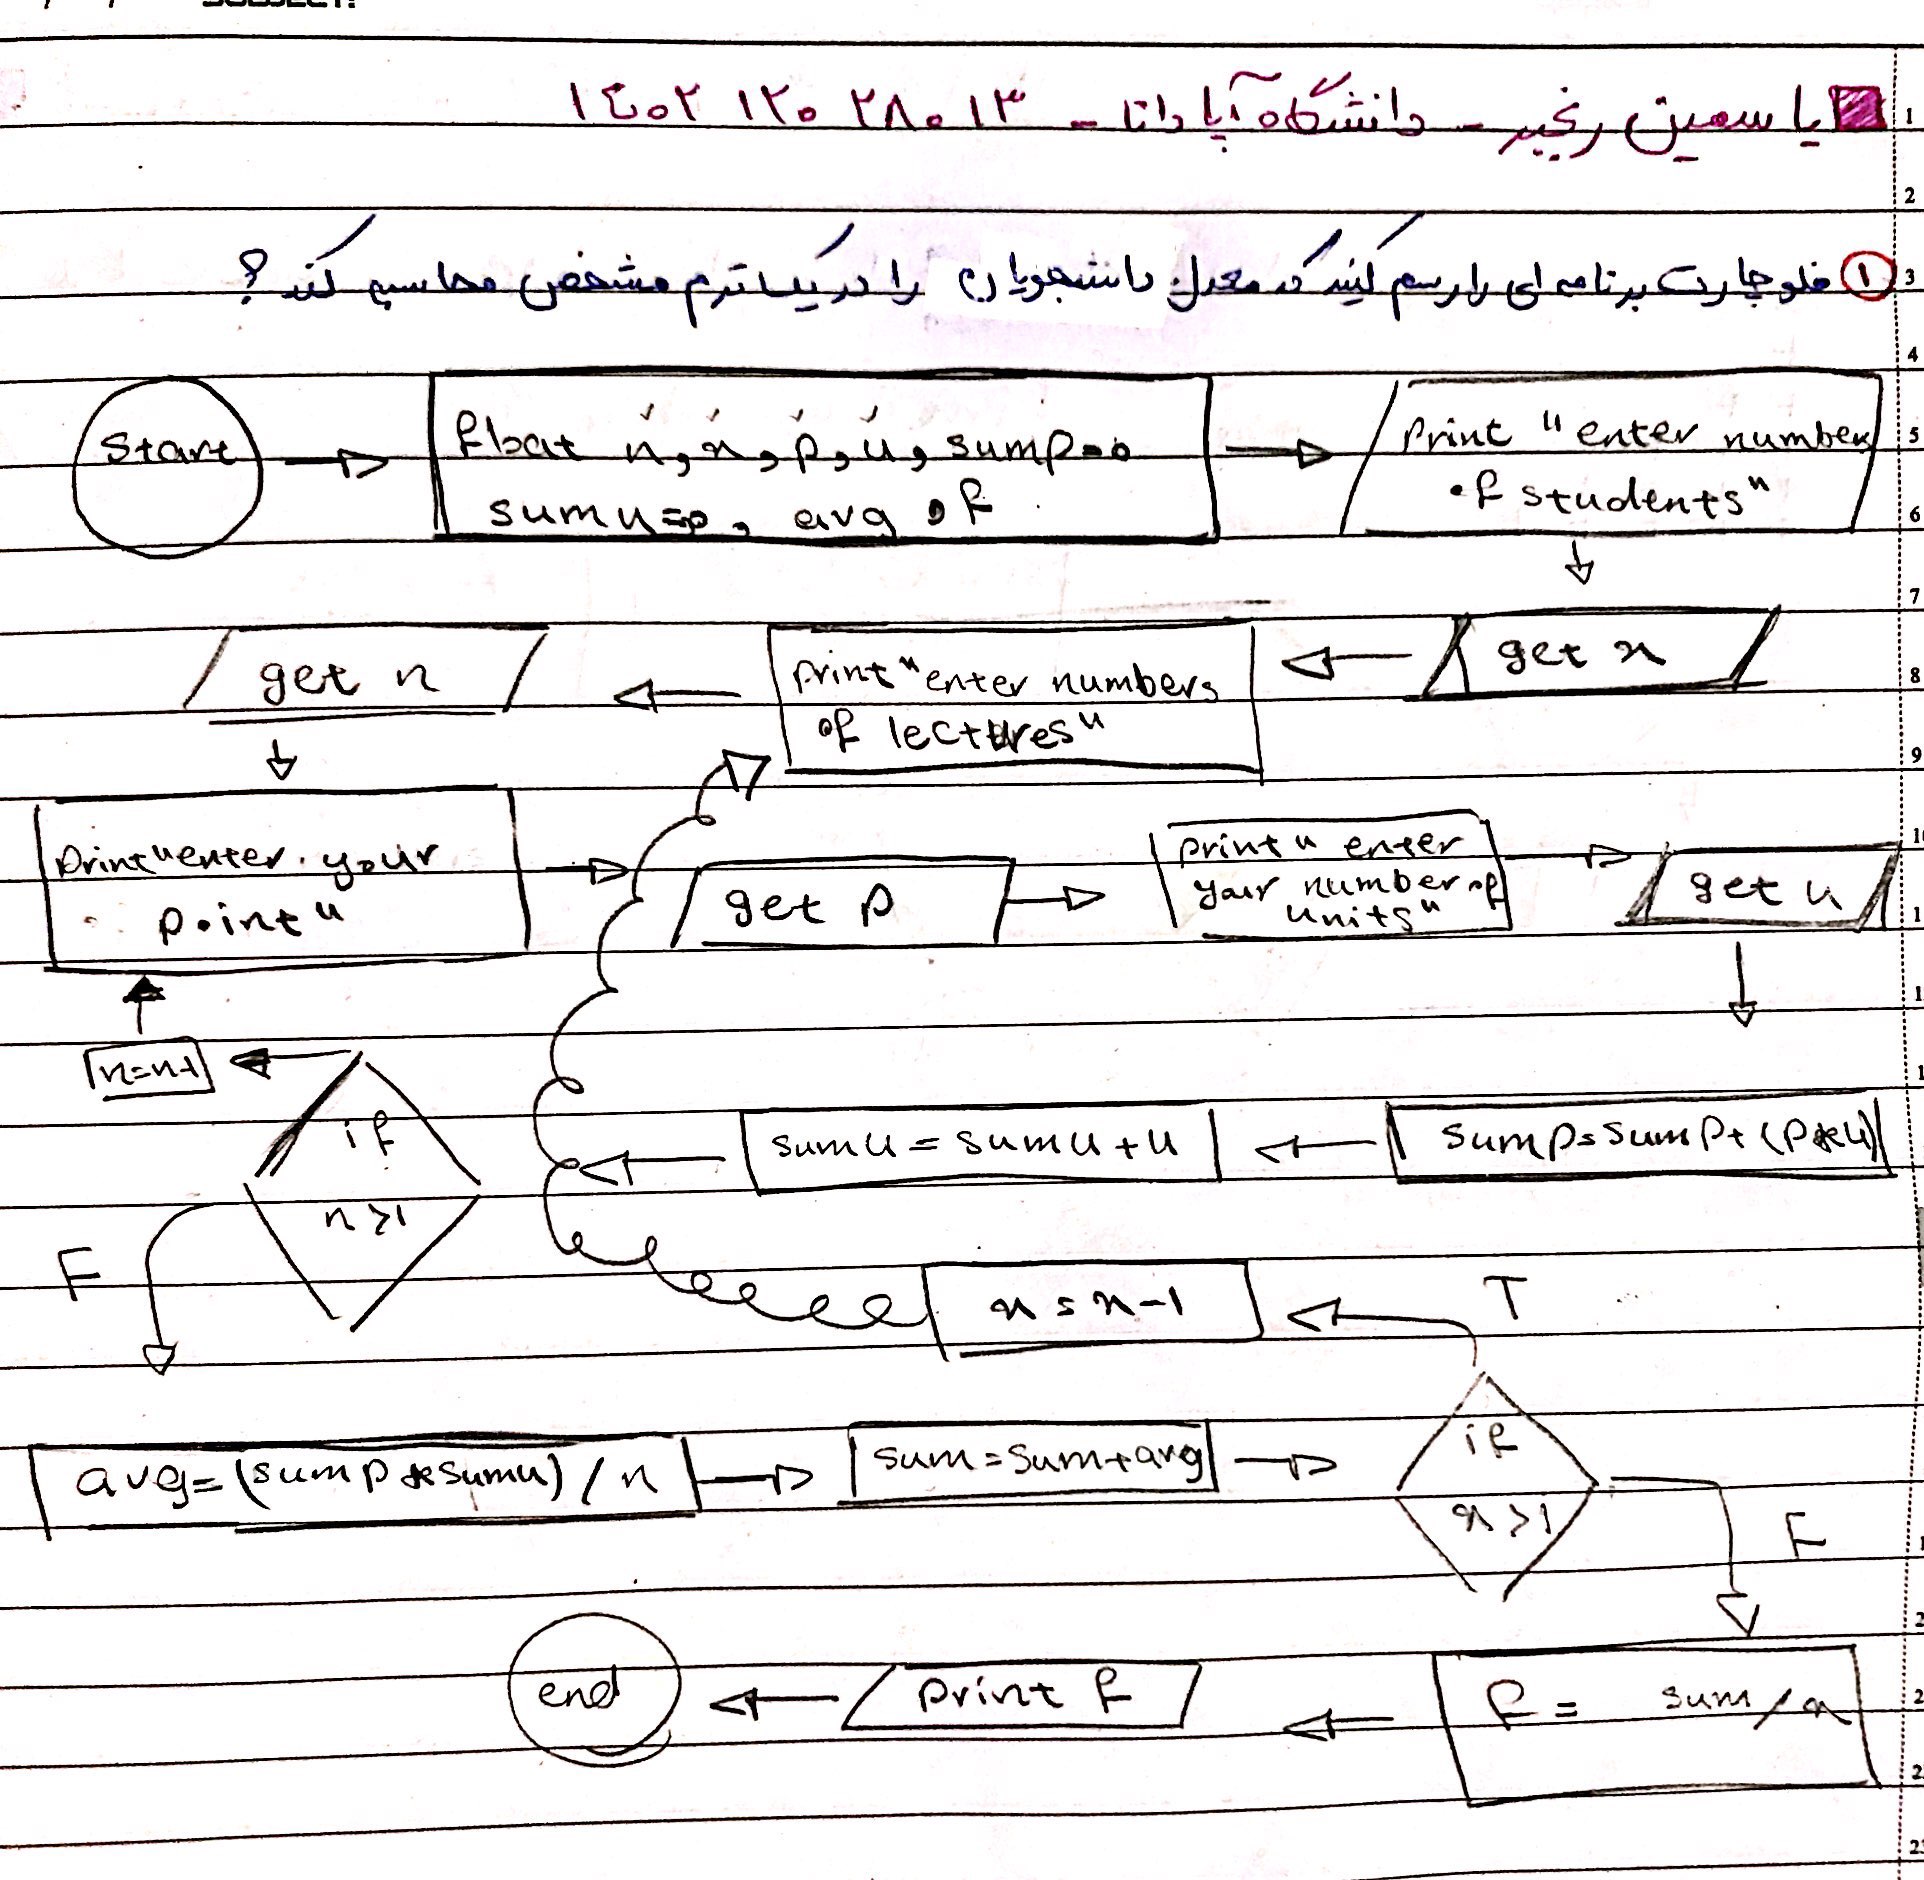 SUBJECT:
یاسمین رنجبر - دانشگاه آپادانا - ۱۴۰۲۱۲۰۲۸۰۱۳
۱ فلوچارت برنامه ای را رسم کنید که معدل دانشجویان را در یک ترم مشخص محاسبه کند ؟
Start
float n, x, p, u, sump=0
sumu=0, avg, f
print "enter number
of students"
get x
print "enter numbers
of lectures"
get n
print "enter your
point"
get p
print "enter
your number of
units"
get u
sump=sump+(p*u)
sumu=sumu+u
if
n>1
n=n-1
F
avg=(sump*sumu)/n
sum=sum+avg
if
x>1
T
x=x-1
F
f= sum/x
print f
end